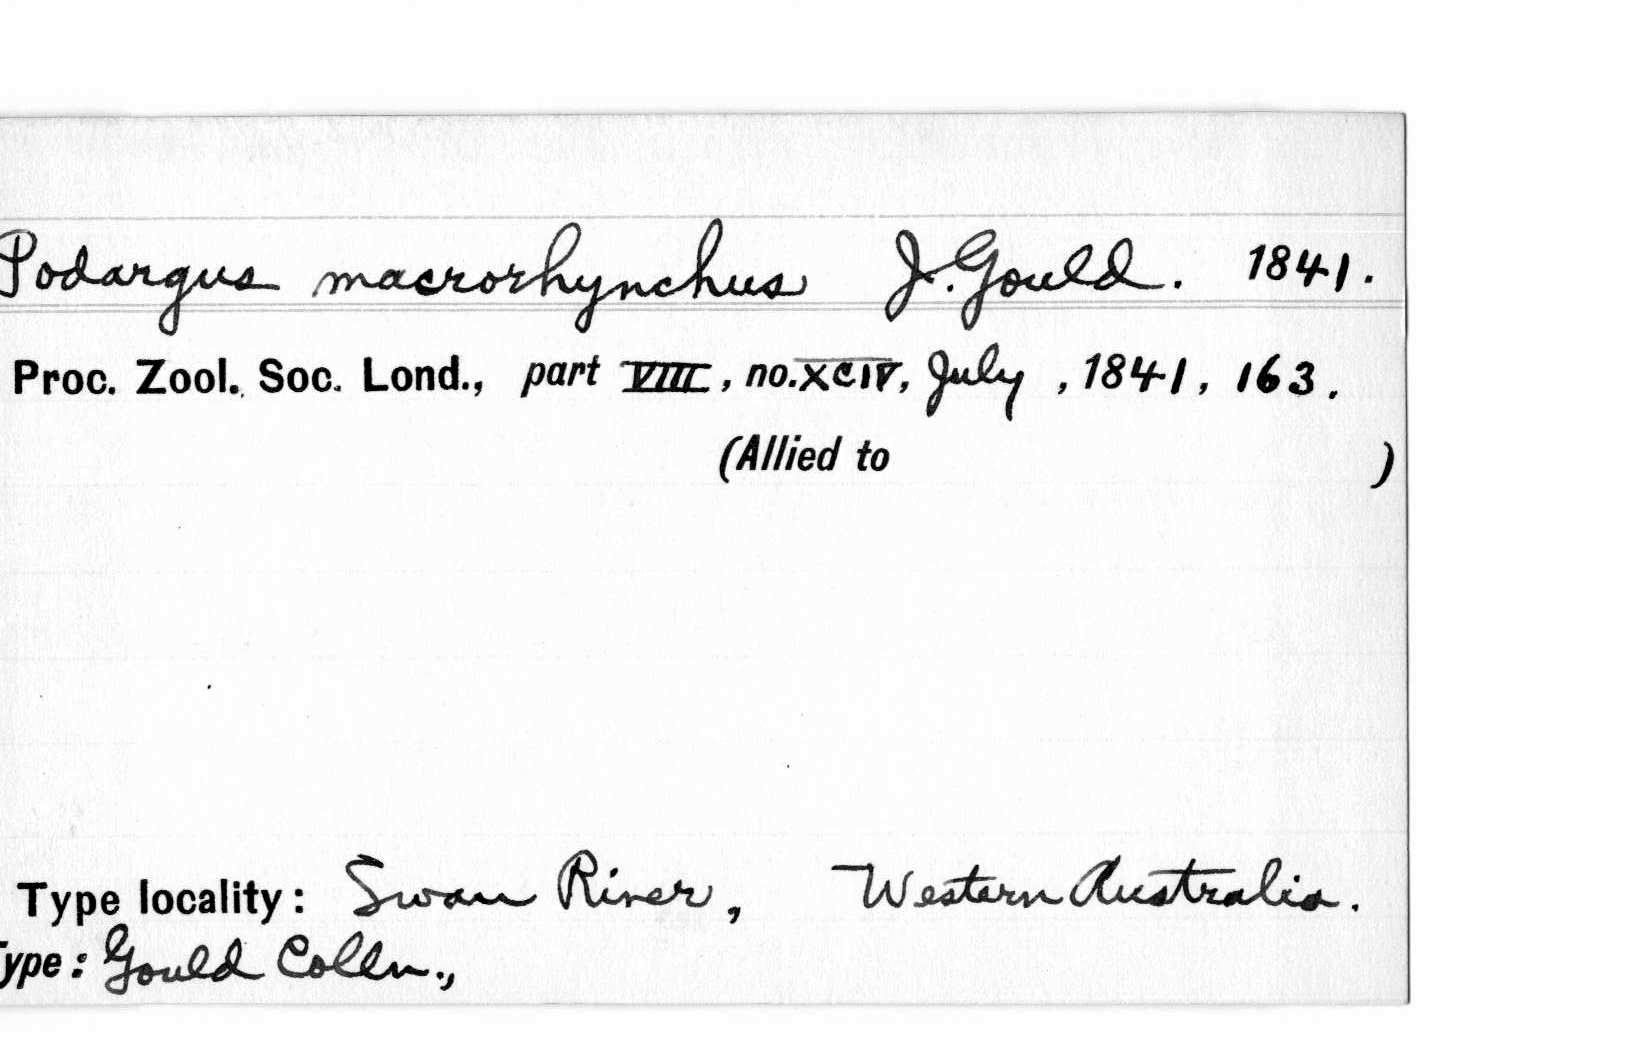 Podargus macrorhynchus J. Gould. 1841.
Proc. Zool. Soc. Lond., part VIII, no. XCIV, July, 1841, 163.
(Allied to )
Type locality: Swan River, Western Australia.
Type: Gould Colln.,